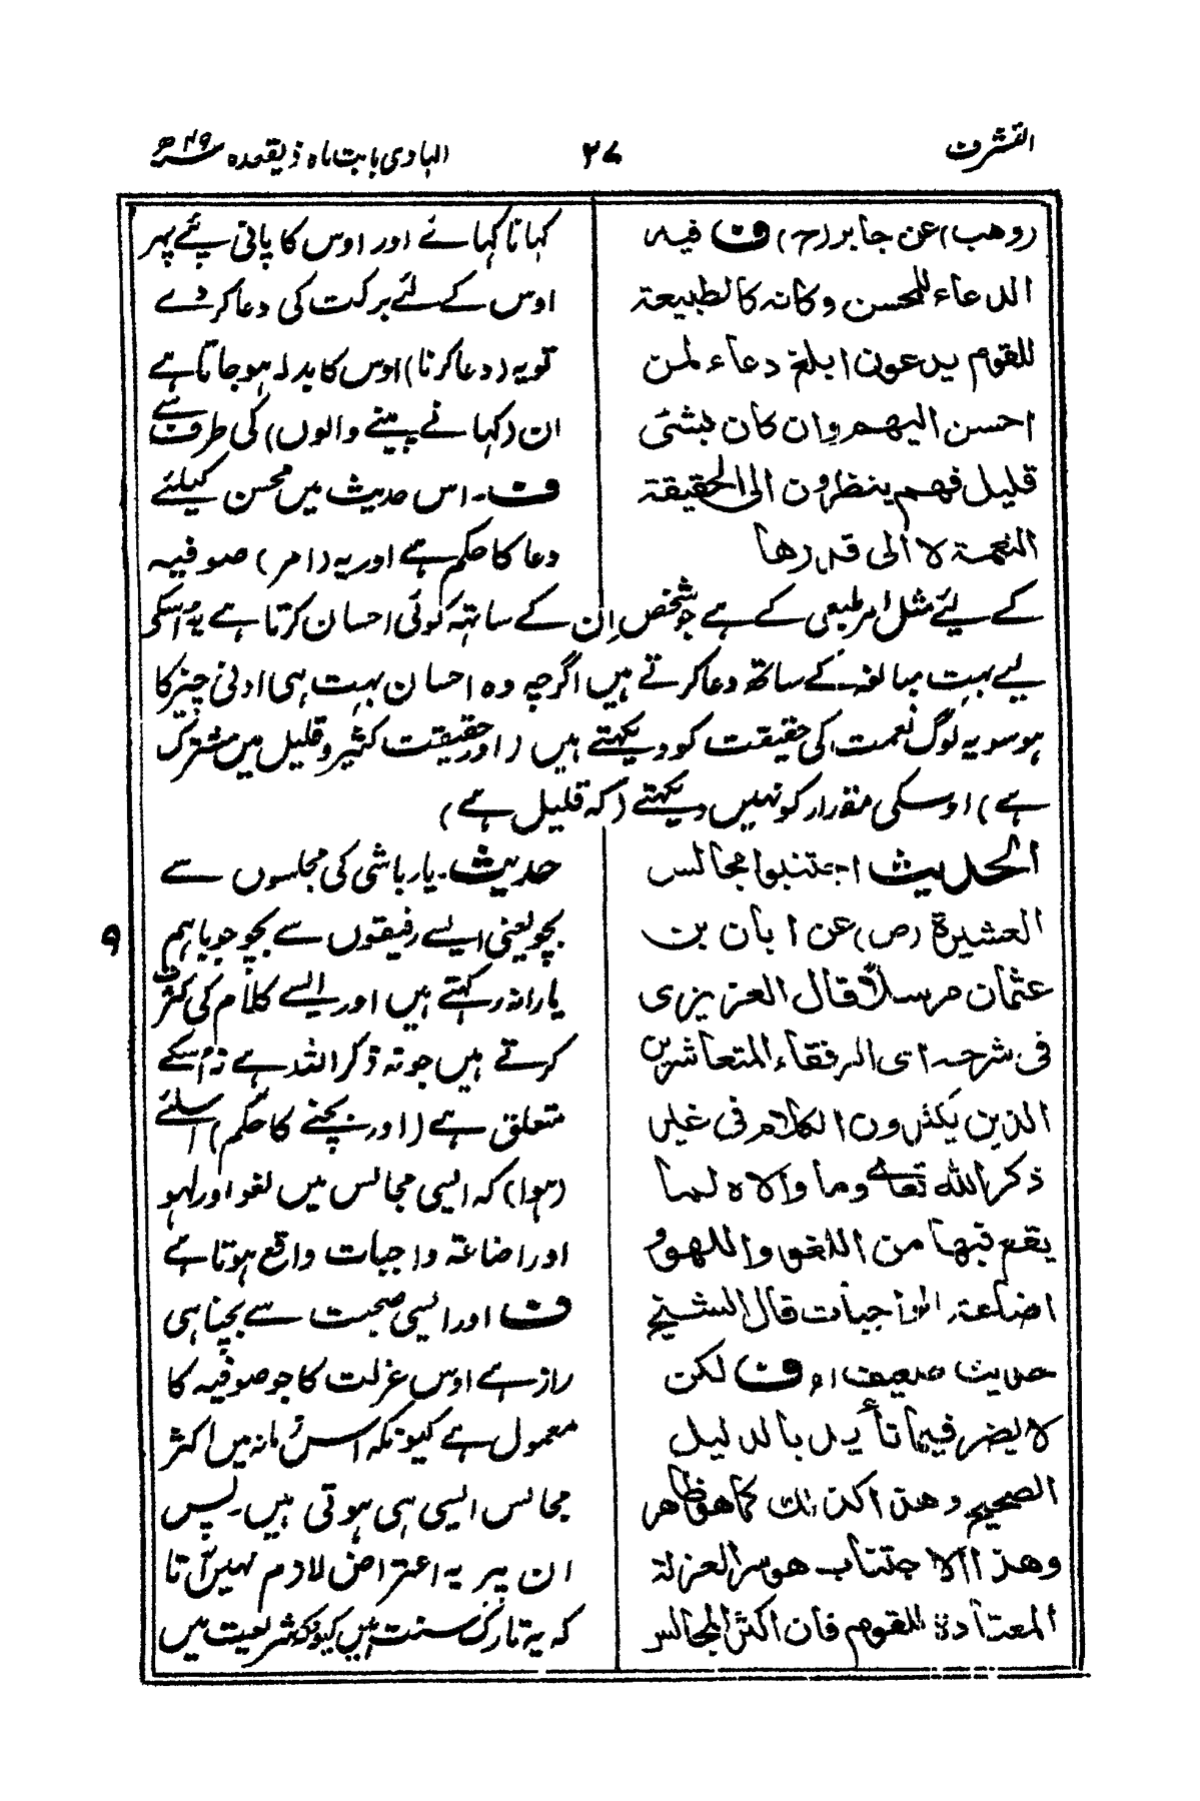 التشرف
۲۷
الہادی بابت ماہ ذیقعدہ ۴۹ھ
(وهب) عن جابر (ح) ف فيه
الدعاء للمحسن وكانه كالطبيعة
للقوم يدعون ابلغ دعاء لمن
احسن اليهم وان كان بشئ
قليل فهم ينظرون الى الحقيقة
النعمة لا الى قدرها
کہانا کہانے اور اوس کا پانی پئے پہر
اوس کے لئے برکت کی دعا کردے
تو یہ (دعا کرنا) اوس کا بدلہ ہو جاتا ہے
ان (کہانے پینے والوں) کی طرف سے
ف۔ اس حدیث میں محسن کیلئے
دعا کا حکم ہے اور یہ (امر) صوفیہ
کے لیئے مثل امر طبعی کے ہے جو شخص اِن کے ساتہہ کوئی احسان کرتا ہے یہ اسکی
لیے بہت مبالغہ کے ساتھ دعا کرتے ہیں اگرچہ وہ احسان بہت ہی ادنی چیز کا
ہو سو یہ لوگ نعمت کی حقیقت کو دیکہتے ہیں (اور حقیقت کثیر و قلیل میں مشترک
ہے) اوسکی مقدار کو نہیں دیکہتے (کہ قلیل ہے)
الحديث اجتنبوا مجالس
العشيرة (ص) عن ابان بن
عثمان مرسلاً قال العزيزى
فى شرحه اى الرفقاء المتعاشرين
الذين يكثرون الكلام فى غير
ذكر الله تعالے وما والاه لما
يقع فيها من اللغو واللهو و
اضاعة الواجبات قال الشيخ
حديث ضعيف اه ف لكن
لا يضر فيما تأيد بالدليل
الصحيح وهذا كذلك كما هو ظاهر
وهذا الاجتناب هو سر العزلة
المعتادة للقوم فان اكثر المجالس
حدیث۔ یار باشی کی مجلسوں سے
بچو یعنی ایسے رفیقوں سے بچو جو باہم
یارانہ رکہتے ہیں اور ایسے کلام کی کثرت
کرتے ہیں جو نہ ذکر اللہ ہے نہ اسکے
متعلق ہے (اور بچنے کا حکم) اسلئے
(ہوا) کہ ایسی مجالس میں لغو اور لہو
اور اضاعۃ واجبات واقع ہوتا ہے
ف اور ایسی صحبت سے بچنا ہی
راز ہے اوس عزلت کا جو صوفیہ کا
معمول ہے کیونکہ اس زمانہ میں اکثر
مجالس ایسی ہی ہوتی ہیں۔ پس
ان پر یہ اعتراض لازم نہیں آتا
کہ یہ تارک سنت ہیں کیونکہ شریعت میں
۹